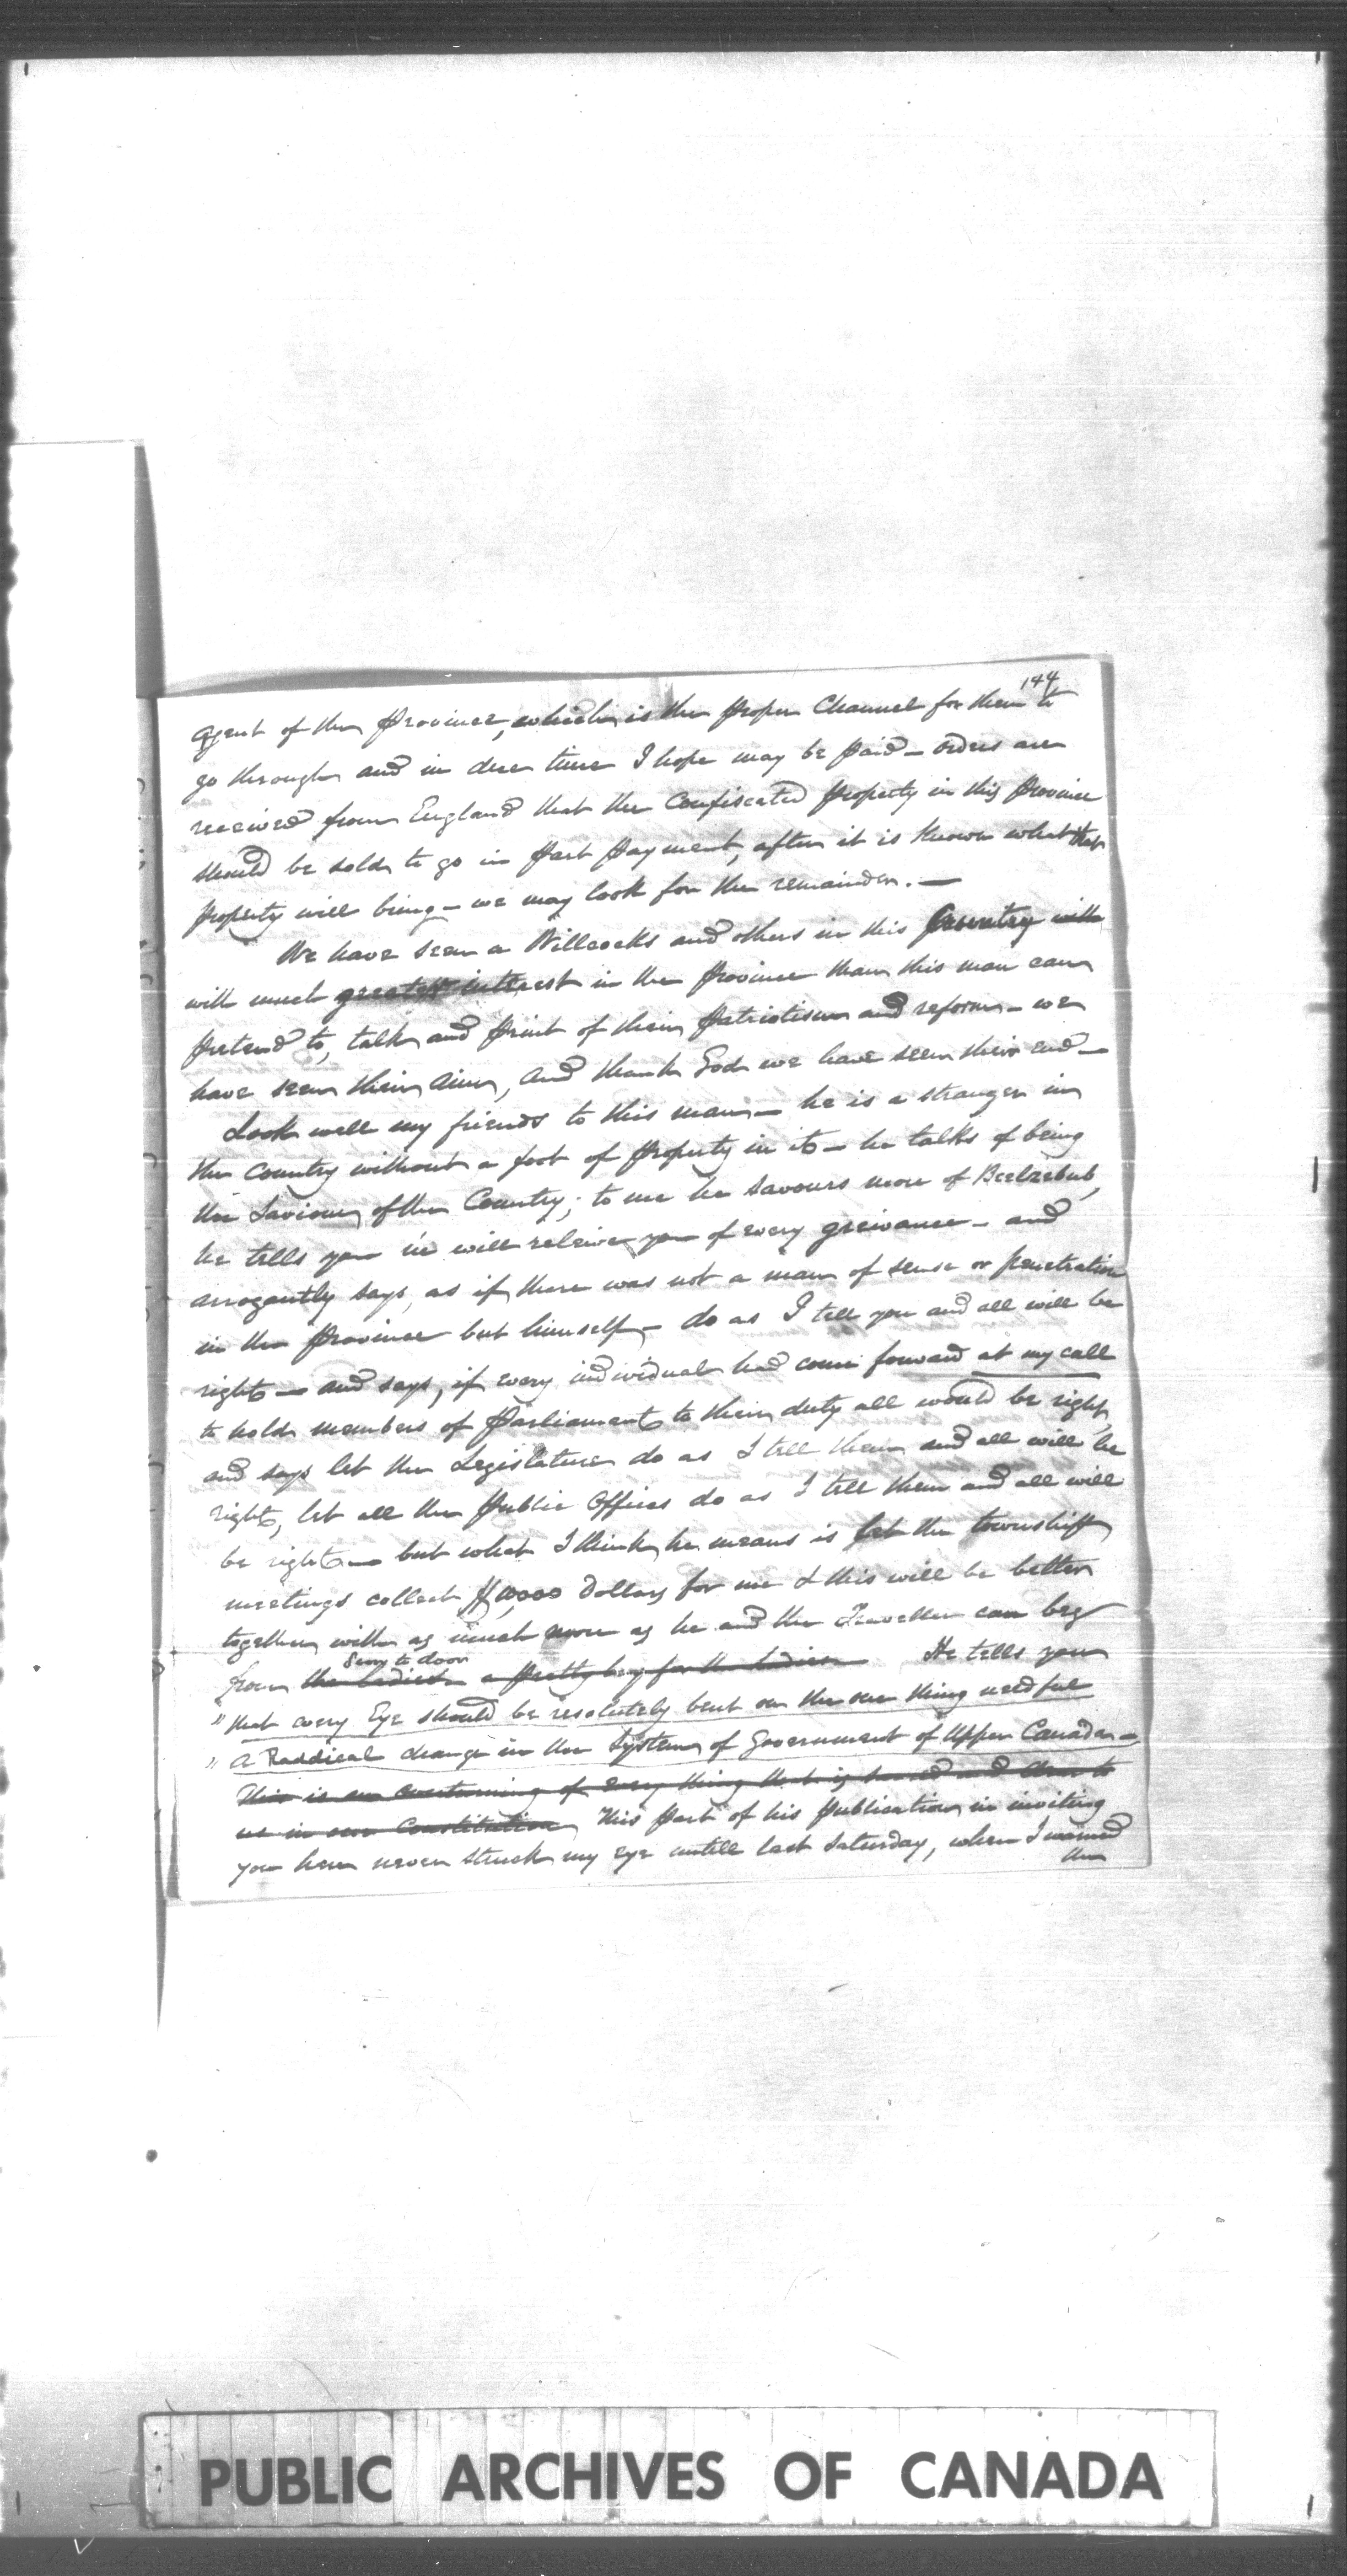 144
agent of the Province, which is the proper Channel for them to
go through and in due time I hope may be paid — orders are
received from England that the Confiscated property in this Province
should be sold to go in part payment, after it is known what that
property will bring — we may look for the remainder. —
We have seen a Willcocks and others in this Country with
with much greater interest in the Province than this man can
pretend to, talk and print of their patriotism and reform — we
have seen their aim, and thank God we have seen their end —
Look well my friends to this man — he is a stranger in
the Country without a foot of property in it — he talks of being
the Saviour of the Country; to me he savours more of Beelzebub,
he tells you he will releive you of every greivance — and
arrogantly says, as if there was not a man of sense or penetration
in the Province but himself — do as I tell you and all will be
right — and says, if every individual had come forward at my call
to hold members of Parliament to their duty all would be right,
and says let the Legislature do as I tell them and all will be
right, let all the public Offices do as I tell them and all will
be right — but what I think he means is let the township
meetings collect 10,000 Dollars for me & this will be better
together with as much more as he and the Traveller can beg
from the Ladies a pretty beg for the Ladies He tells you
to door
" that every Eye should be resolutely bent on the one thing needful
" A Raddical change in the System of Government of Upper Canada —
This is an overturning of every thing that is and dear to
us in our Constitution This part of his publication in inviting
you here never struck my eye untill last Saturday, when I warned
the
PUBLIC ARCHIVES OF CANADA